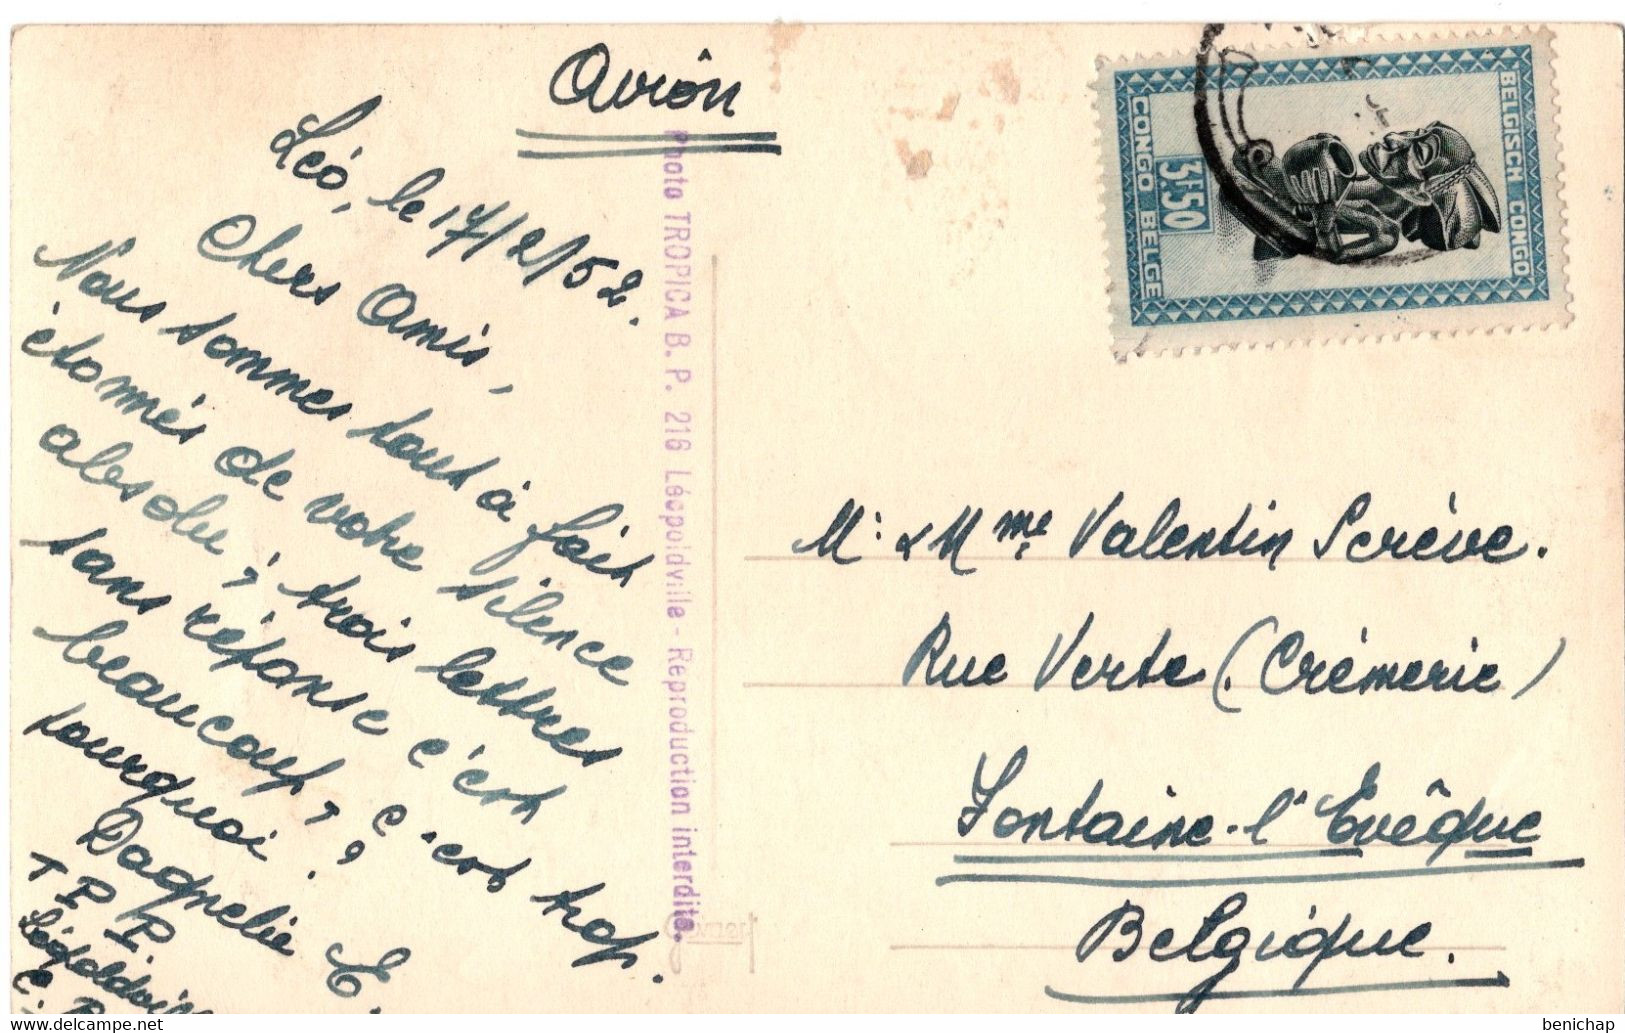 Avion
Léo, le 17/2/52.
Chers Amis,
Nous sommes tout à fait
étonnés de votre silence
absolu, trois lettres
sans réponse c'est
beaucoup, c'est trop.
pourquoi ?
Dagnelie E.
T P P.
Léopoldvi
C.
Photo TROPICA B. P. 216 Léopoldville - Reproduction interdite.
Gevaert
BELGISCH CONGO
3F50
CONGO BELGE
M. & Mme Valentin Scrève.
Rue Verte (Crémerie)
Fontaine-l'Evêque
Belgique.
benichap